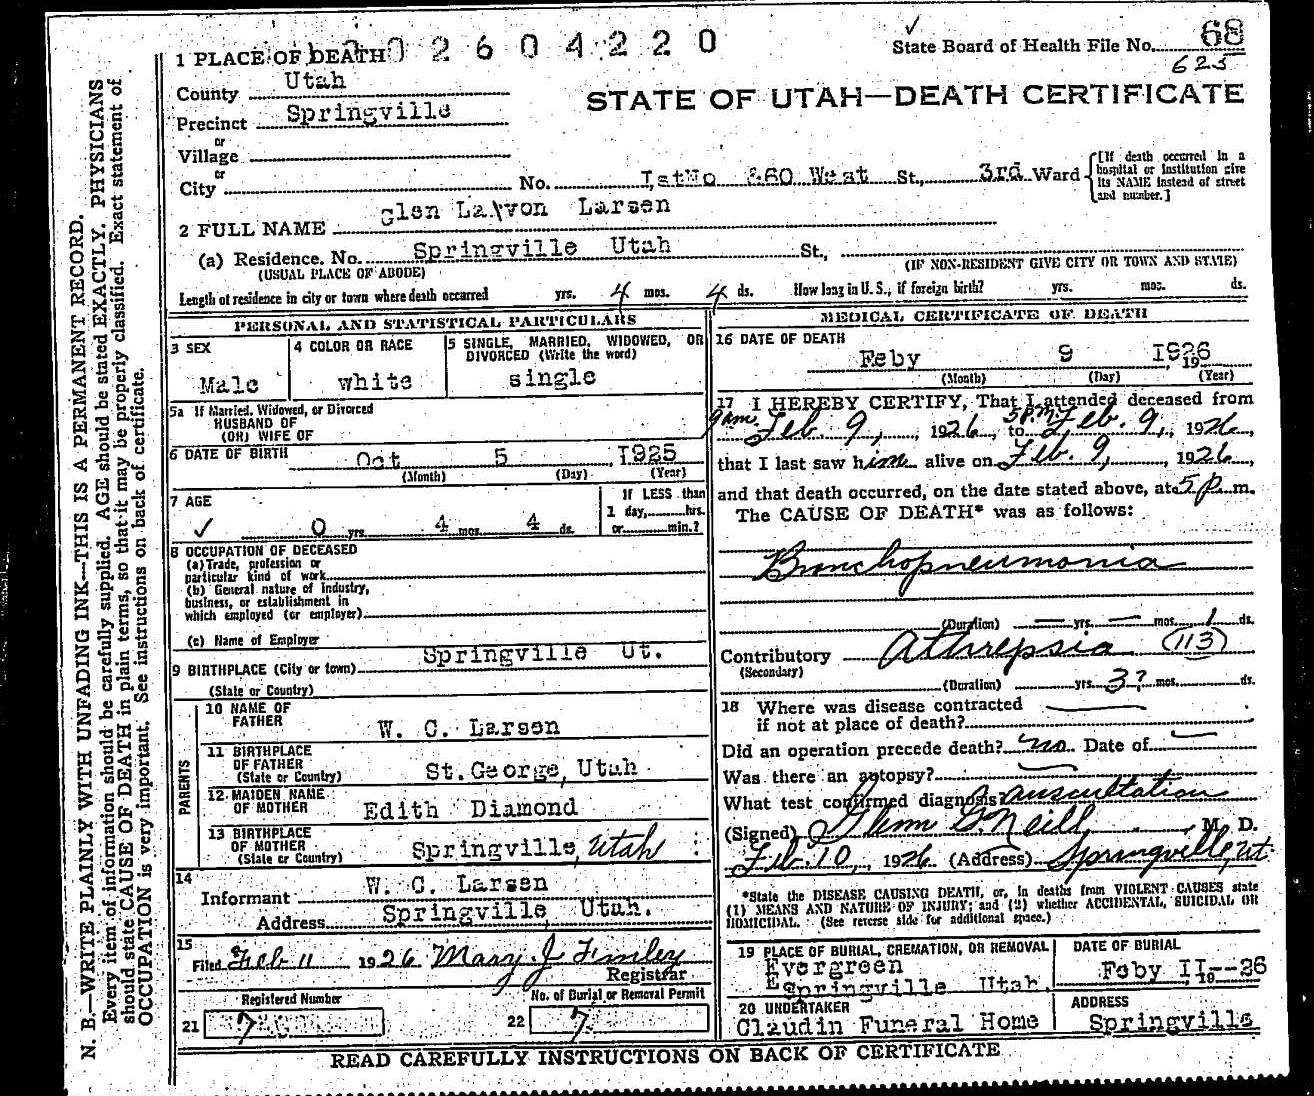 2604220
State Board of Health File No. 68
625
1 PLACE OF DEATH
County Utah
STATE OF UTAH—DEATH CERTIFICATE
Precinct Springville
or
Village
or
City No. 1stNo 360 West St., 3rd Ward
[If death occurred in a hospital or institution give its NAME instead of street and number.]
2 FULL NAME Glen LaVvon Larsen
(a) Residence. No. Springville Utah St.,
(USUAL PLACE OF ABODE) (IF NON-RESIDENT GIVE CITY OR TOWN AND STATE)
Length of residence in city or town where death occurred yrs. 4 mos. 4 ds. How long in U. S., if foreign birth? yrs. mos. ds.
PERSONAL AND STATISTICAL PARTICULARS
3 SEX 4 COLOR OR RACE 5 SINGLE, MARRIED, WIDOWED, OR DIVORCED (Write the word)
Male white single
5a If Married, Widowed, or Divorced
HUSBAND OF
(OR) WIFE OF
6 DATE OF BIRTH Oct 5, 1925
(Month) (Day) (Year)
7 AGE If LESS than
1 day, hrs.
✓ 0 yrs. 4 mos. 4 ds. or min.?
8 OCCUPATION OF DECEASED
(a) Trade, profession or
particular kind of work
(b) General nature of industry,
business, or establishment in
which employed (or employer)
(c) Name of Employer
9 BIRTHPLACE (City or town) Springville Ut.
(State or Country)
PARENTS
10 NAME OF
FATHER W. C. Larsen
11 BIRTHPLACE
OF FATHER
(State or Country) St. George, Utah
12 MAIDEN NAME
OF MOTHER Edith Diamond
13 BIRTHPLACE
OF MOTHER
(State or Country) Springville, Utah
14
Informant W. C. Larsen
Address Springville, Utah.
15
Filed Feb 11 1926 Mary J Finley
Registrar
Registered Number No. of Burial or Removal Permit
21 7 22 7
MEDICAL CERTIFICATE OF DEATH
16 DATE OF DEATH
Feby 9, 1926
(Month) (Day) (Year)
17 I HEREBY CERTIFY, That I attended deceased from
9am. Feb. 9, 1926, to 5 P.M. Feb. 9, 1926,
that I last saw him alive on Feb. 9, 1926,
and that death occurred, on the date stated above, at 5 p. m.
The CAUSE OF DEATH* was as follows:
Bronchopneumonia
(Duration) — yrs. — mos. 1 ds.
Contributory Athrepsia (113)
(Secondary)
(Duration) yrs. 3? mos. ds.
18 Where was disease contracted
if not at place of death?
Did an operation precede death? no Date of
Was there an autopsy?
What test confirmed diagnosis? Auscultation
(Signed) M. D.
Feb. 10, 1926 (Address) Springville, Ut.
*State the DISEASE CAUSING DEATH, or, in deaths from VIOLENT CAUSES state
(1) MEANS AND NATURE OF INJURY; and (2) whether ACCIDENTAL, SUICIDAL OR
HOMICIDAL. (See reverse side for additional space.)
19 PLACE OF BURIAL, CREMATION, OR REMOVAL DATE OF BURIAL
Evergreen
Springville Utah. Feby II, 19--26
20 UNDERTAKER ADDRESS
Claudin Funeral Home Springville
READ CAREFULLY INSTRUCTIONS ON BACK OF CERTIFICATE
N. B.—WRITE PLAINLY WITH UNFADING INK—THIS IS A PERMANENT RECORD.
Every item of information should be carefully supplied. AGE should be stated EXACTLY. PHYSICIANS
should state CAUSE OF DEATH in plain terms, so that it may be properly classified. Exact statement of
OCCUPATION is very important. See instructions on back of certificate.